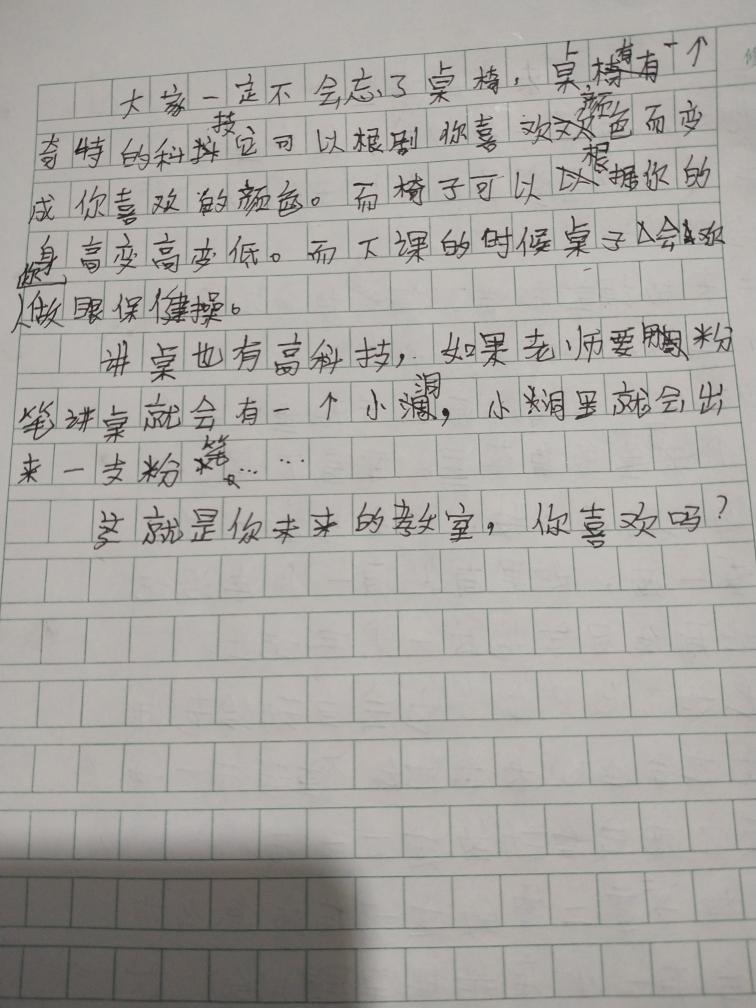 大家一定不会忘了桌椅，桌椅有一个
奇特的科技它可以根剧你喜欢颜色而变
成你喜欢的颜色。而椅子可以根据你的
身高变高变低。而下课的时候桌子会
做眼保健操。
讲桌也有高科技，如果老师要用粉
笔讲桌就会有一个小洞，小洞里就会出
来一支粉笔。……
这就是你未来的教室，你喜欢吗？